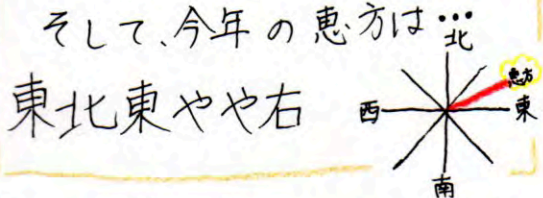 そして、今年の恵方は…
東北東やや右
北
恵方
西
東
南